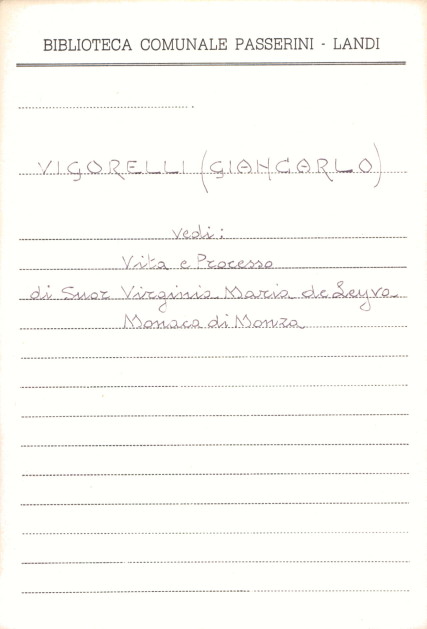 BIBLIOTECA COMUNALE PASSERINI - LANDI
VIGORELLI (GIANCARLO)
vedi:
Vita e Processo
di Suor Virginia Maria de Leyva
Monaca di Monza